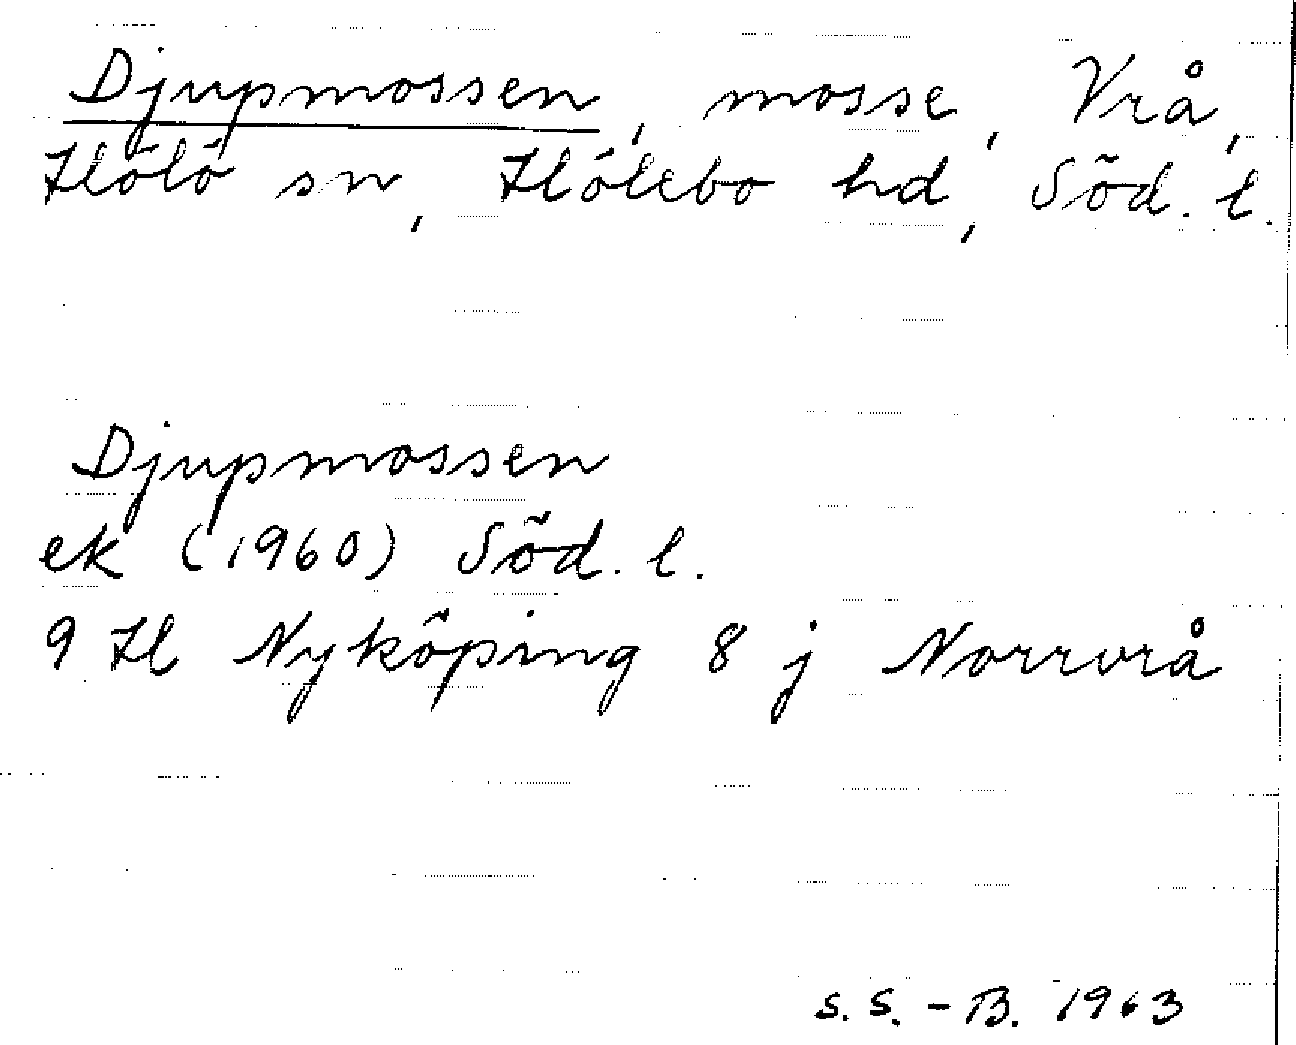 Djupmossen, mosse, Vrå,
Hölö sn, Hölebo hd, Söd. l.
Djupmossen
ek (1960) Söd. l.
9 H Nyköping 8 j Norrvrå
S. S. - B. 1963